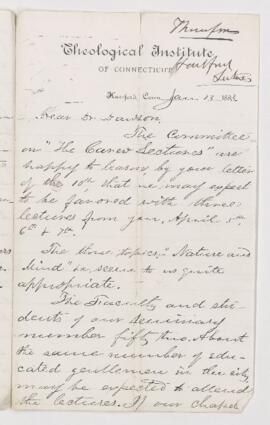 Theological Institute
OF CONNECTICUT
Hartford
Lectures
Hartford, Conn. Jan 13 1886
Dear Dr Dawson,
The Committee
on "The Carew Lectures" are
happy to learn by your letter
of the 10th that we may expect
to be favored with three
lectures from you, April 5th
6th & 7th.
The three topics, "Nature and
Mind" &c. seem to us quite
appropriate.
The Faculty and stu-
dents of our seminary
number fifty two. About
the same number of edu-
cated gentlemen in the city
may be expected to attend
the lectures. If our chapel